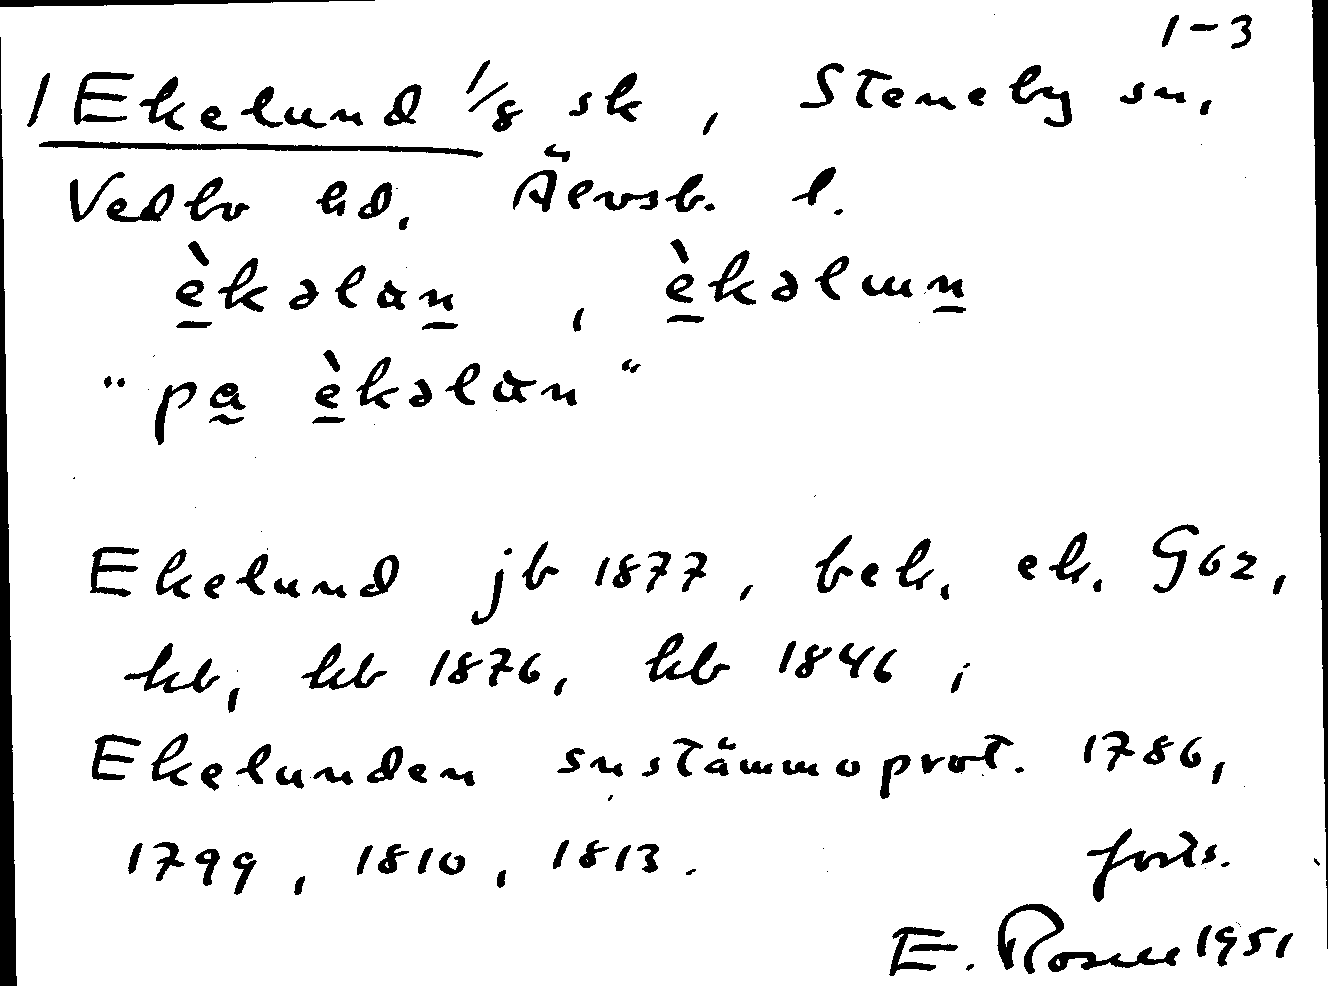 1-3
1 Ekelund 1/8 sk, Steneby sn,
Vedbo hd, Älvsb. l.
èkəlan, èkəlɯn
"pa èkəlan"
Ekelund jb 1877, bek. ek. G62,
kb, kb 1876, hb 1846;
Ekelunden snstämmoprot. 1786,
1799, 1810, 1813. forts.
E. Rosell 1951